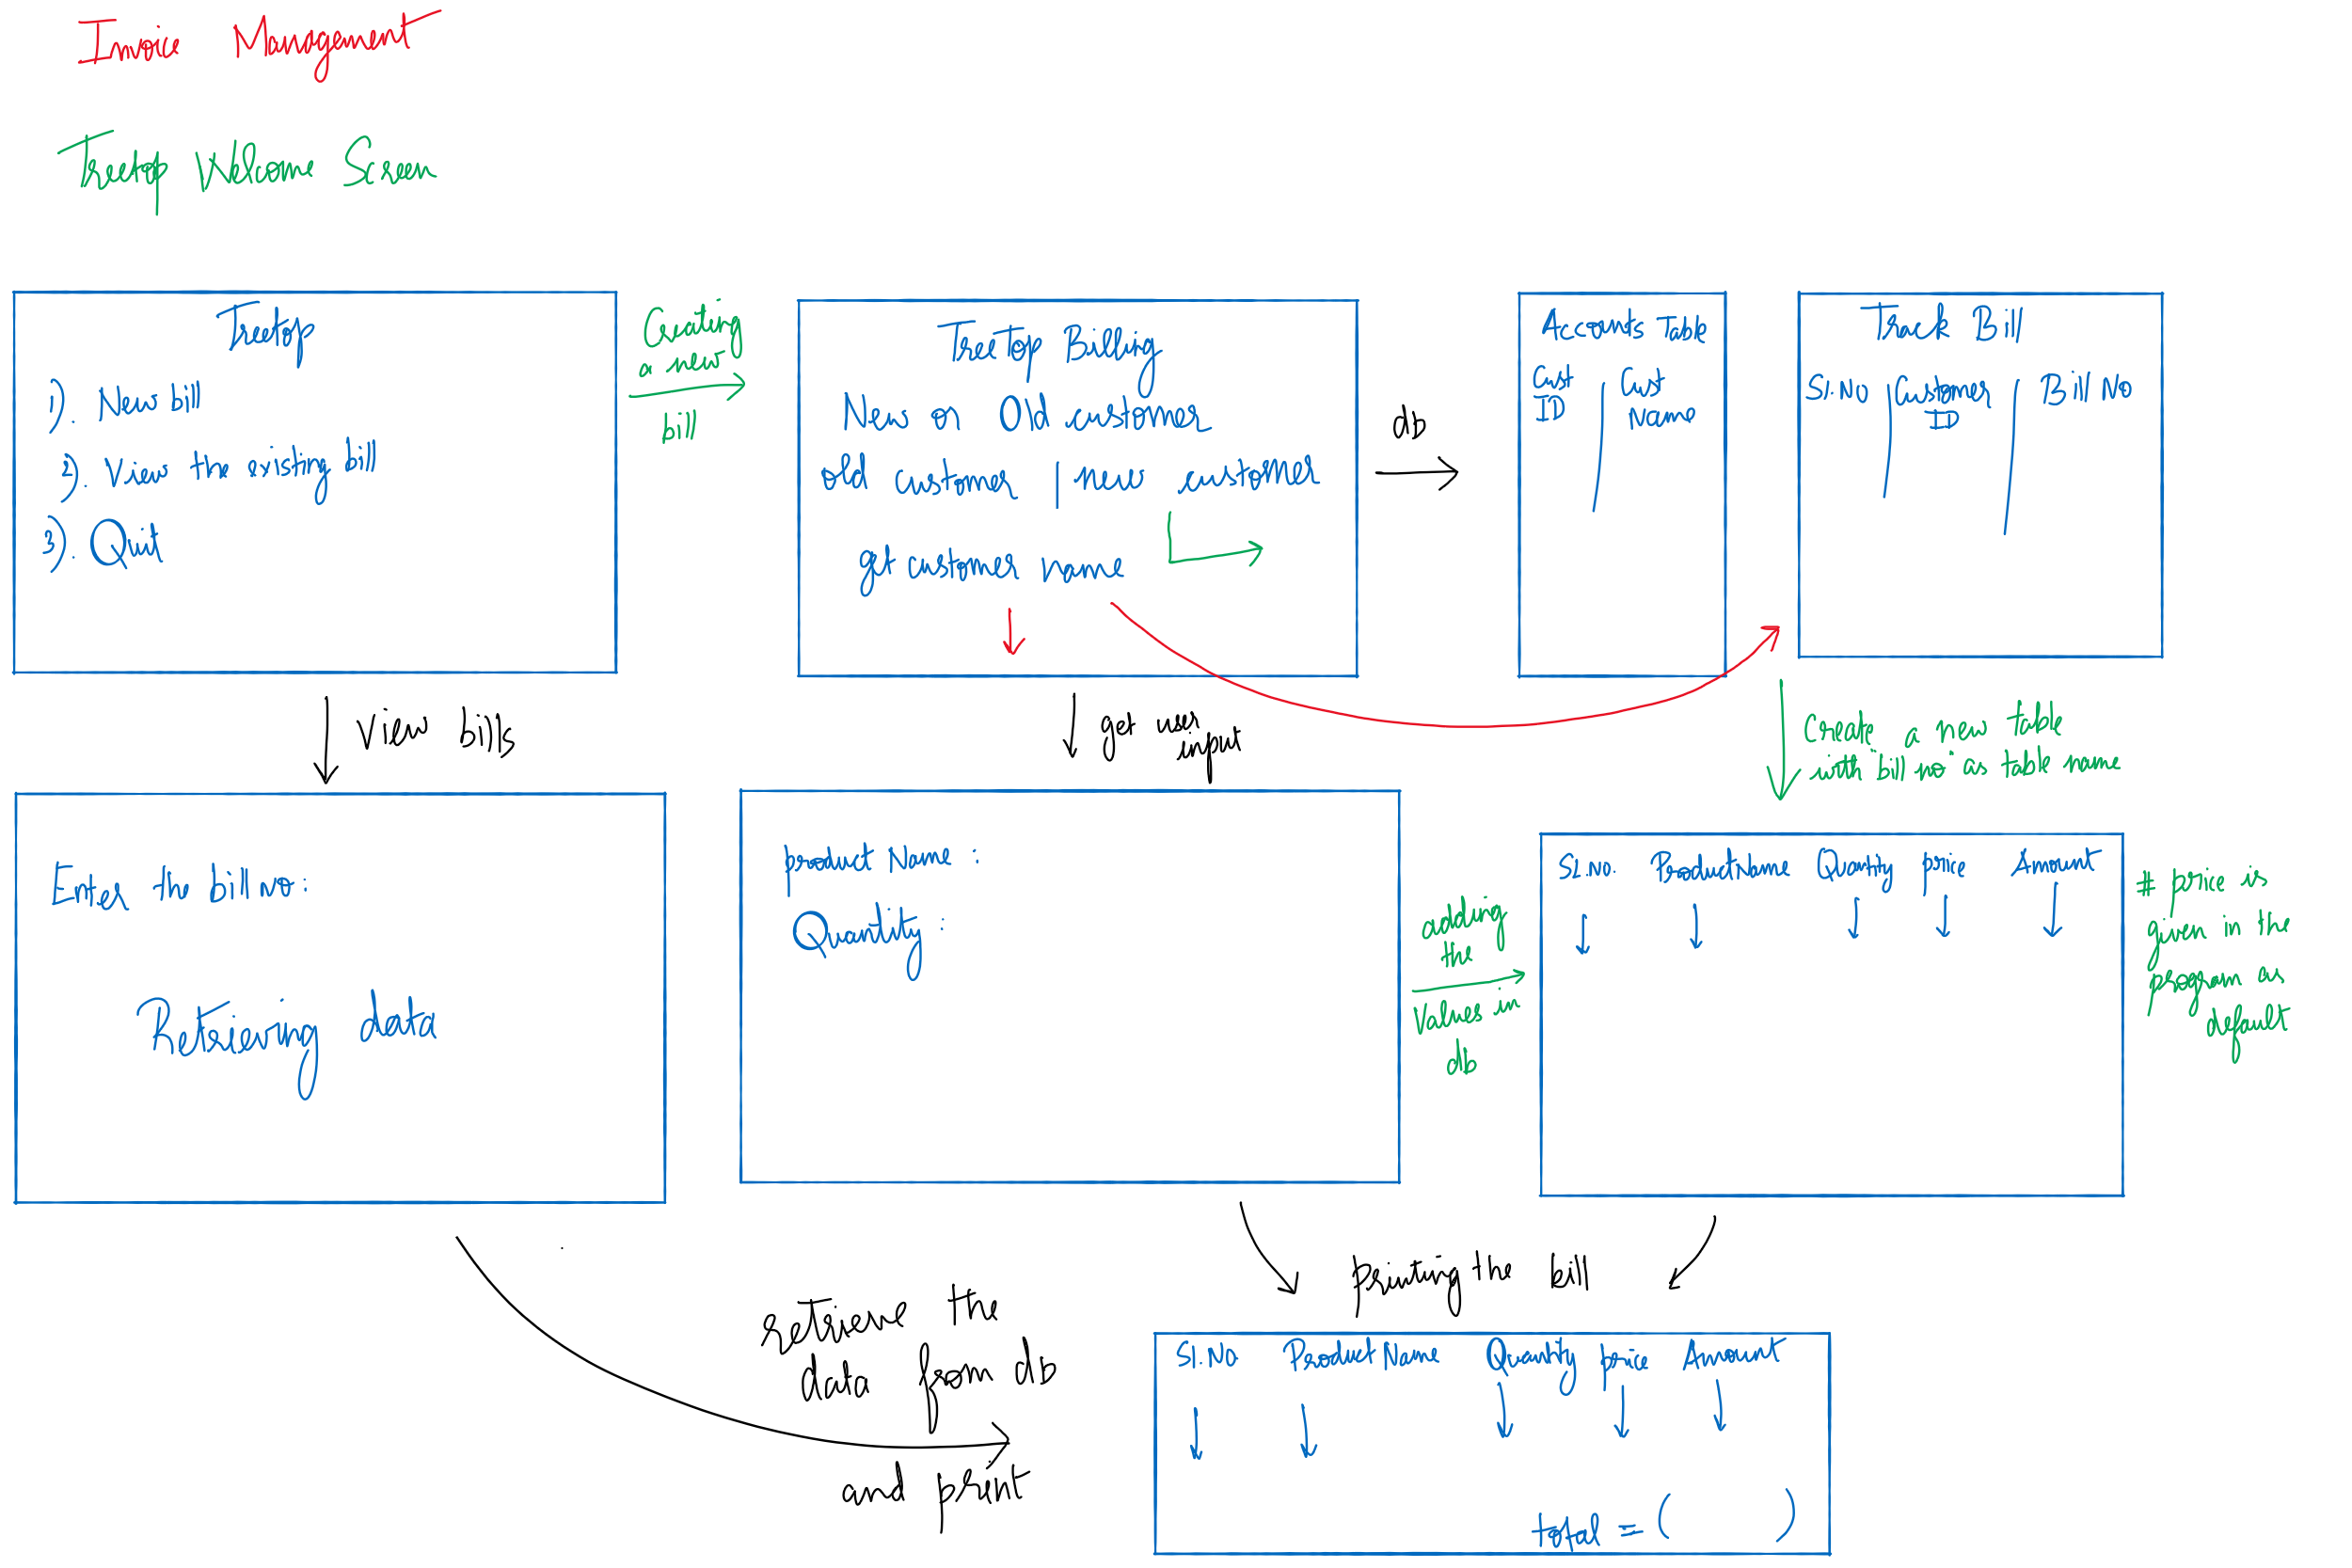 Invoice Management
Treetop Welcome Screen
Treetop
1). New bill
2). View the existing bill
3). Quit
Creating
a new
bill
TreeTop Billing
New or Old customer
old customer | new customer
get customer name
db
Accounts Table
Cust ID
Cust Name
Track Bill
Sl.No
Customer ID
Bill No
View bills
get user
input
Create a new table
with bill no as table name
Enter the bill no:
Retrieving data
product Name :
Quantity :
adding
the
Values in
db
SL.NO. Product Name Quantity price Amount
# price is
given in the
program as
default
retrieve the
data from db
and print
printing the bill
Sl.No. Product Name Quantity price Amount
total = ( )